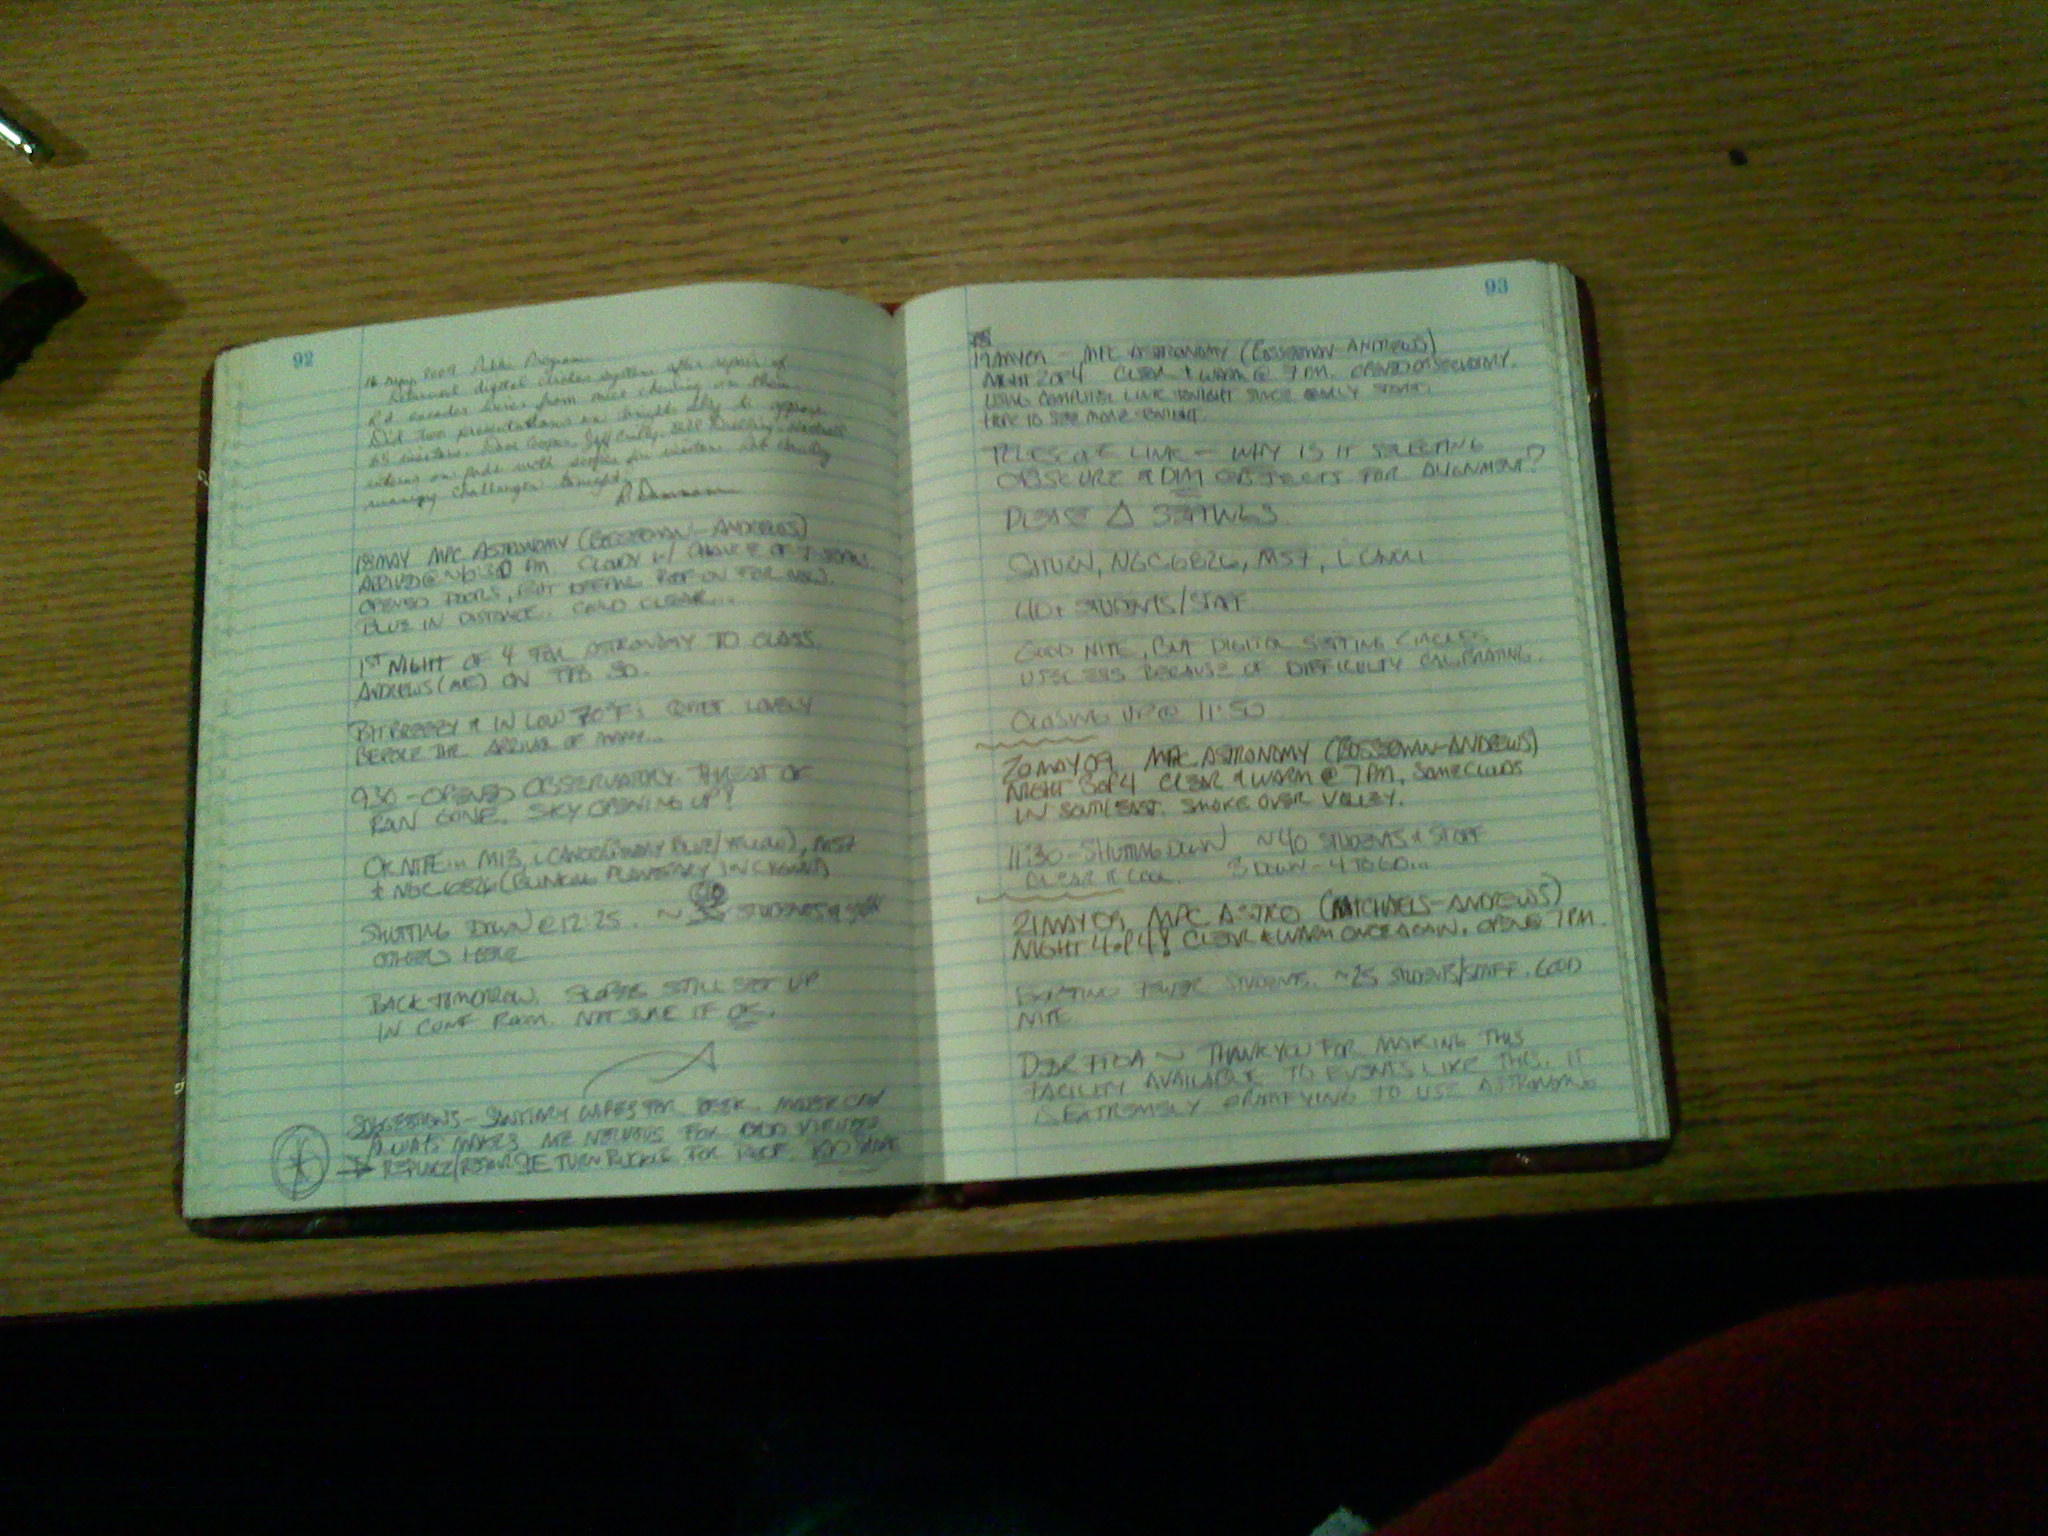 92
16 May 2009 Public Program
Returned digital circles system after repair of
encoder wires from mice chewing on them
Did two presentations on bright sky to approx
65 visitors. Dave Cooper, Jeff
on pads with scopes for visitors.
challenges tonight.
18 MAY MPC ASTRONOMY (BOSSERMAN-ANDREWS)
ARRIVED @ ~6:30 PM CLOUDY W/ CHANCE OF T-STORMS.
OPENED DOORS, BUT KEEPING ROOF ON FOR NOW.
BLUE IN DISTANCE. COULD CLEAR...
1ST NIGHT OF 4 FOR ASTRONOMY TO CLASS.
ANDREWS (ME) ON THE 30.
BIT BREEZY & IN LOW 70°F; QUIET. LOVELY
BEFORE THE ARRIVAL OF MANY...
930 - OPENED OBSERVATORY. THREAT OF
RAIN GONE. SKY OPENING UP!
OK NITE M13, BLUE/YELLOW), M57
& NGC 6826 (BLINKING PLANETARY IN CYGNUS)
SHUTTING DOWN @ 12:25. ~ STUDENTS & STAFF
OTHERS HERE
BACK TOMORROW. SCOPES STILL SET UP
IN CONF ROOM. NOT SURE IF OK.
SUGGESTIONS - SANITARY WIPES FOR
ALWAYS MAKES ME NERVOUS FOR VIEWERS
REPLACE/REPAIR TURNBUCKLE FOR ROOF.
93
19 MAY 09 - MPC ASTRONOMY (BOSSERMAN-ANDREWS)
NIGHT 2 OF 4 CLEAR & WARM @ 7 PM. OPENED OBSERVATORY.
USING COMPUTER LINK TONIGHT SINCE EARLY START.
HOPE TO SEE MORE TONIGHT.
TELESCOPE LINK - WHY IS IT SELECTING
OBSCURE & DIM OBJECTS FOR ALIGNMENT?
PLEASE Δ SETTINGS
SATURN, NGC 6826, M57, ι CANCRI
40+ STUDENTS/STAFF
GOOD NITE, BUT DIGITAL SETTING CIRCLES
USELESS BECAUSE OF DIFFICULTY CALIBRATING.
CLOSING UP @ 11:50
20 MAY 09 MPC ASTRONOMY (BOSSERMAN-ANDREWS)
NIGHT 3 OF 4 CLEAR & WARM @ 7 PM. SOME CLOUDS
IN SOUTHEAST. SMOKE OVER VALLEY.
11:30 - SHUTTING DOWN ~40 STUDENTS & STAFF
CLEAR & COOL. 3 DOWN - 4 TO GO...
21 MAY 09 MPC ASTRO (MICHAELS-ANDREWS)
NIGHT 4 OF 4! CLEAR & WARM ONCE AGAIN. OPEN @ 7 PM.
EXPECTING FEWER STUDENTS. ~25 STUDENTS/STAFF. GOOD
NITE
DEAR ~ THANK YOU FOR MAKING THIS
FACILITY AVAILABLE TO EVENTS LIKE THIS. IT
IS EXTREMELY GRATIFYING TO USE ASTRONOMY